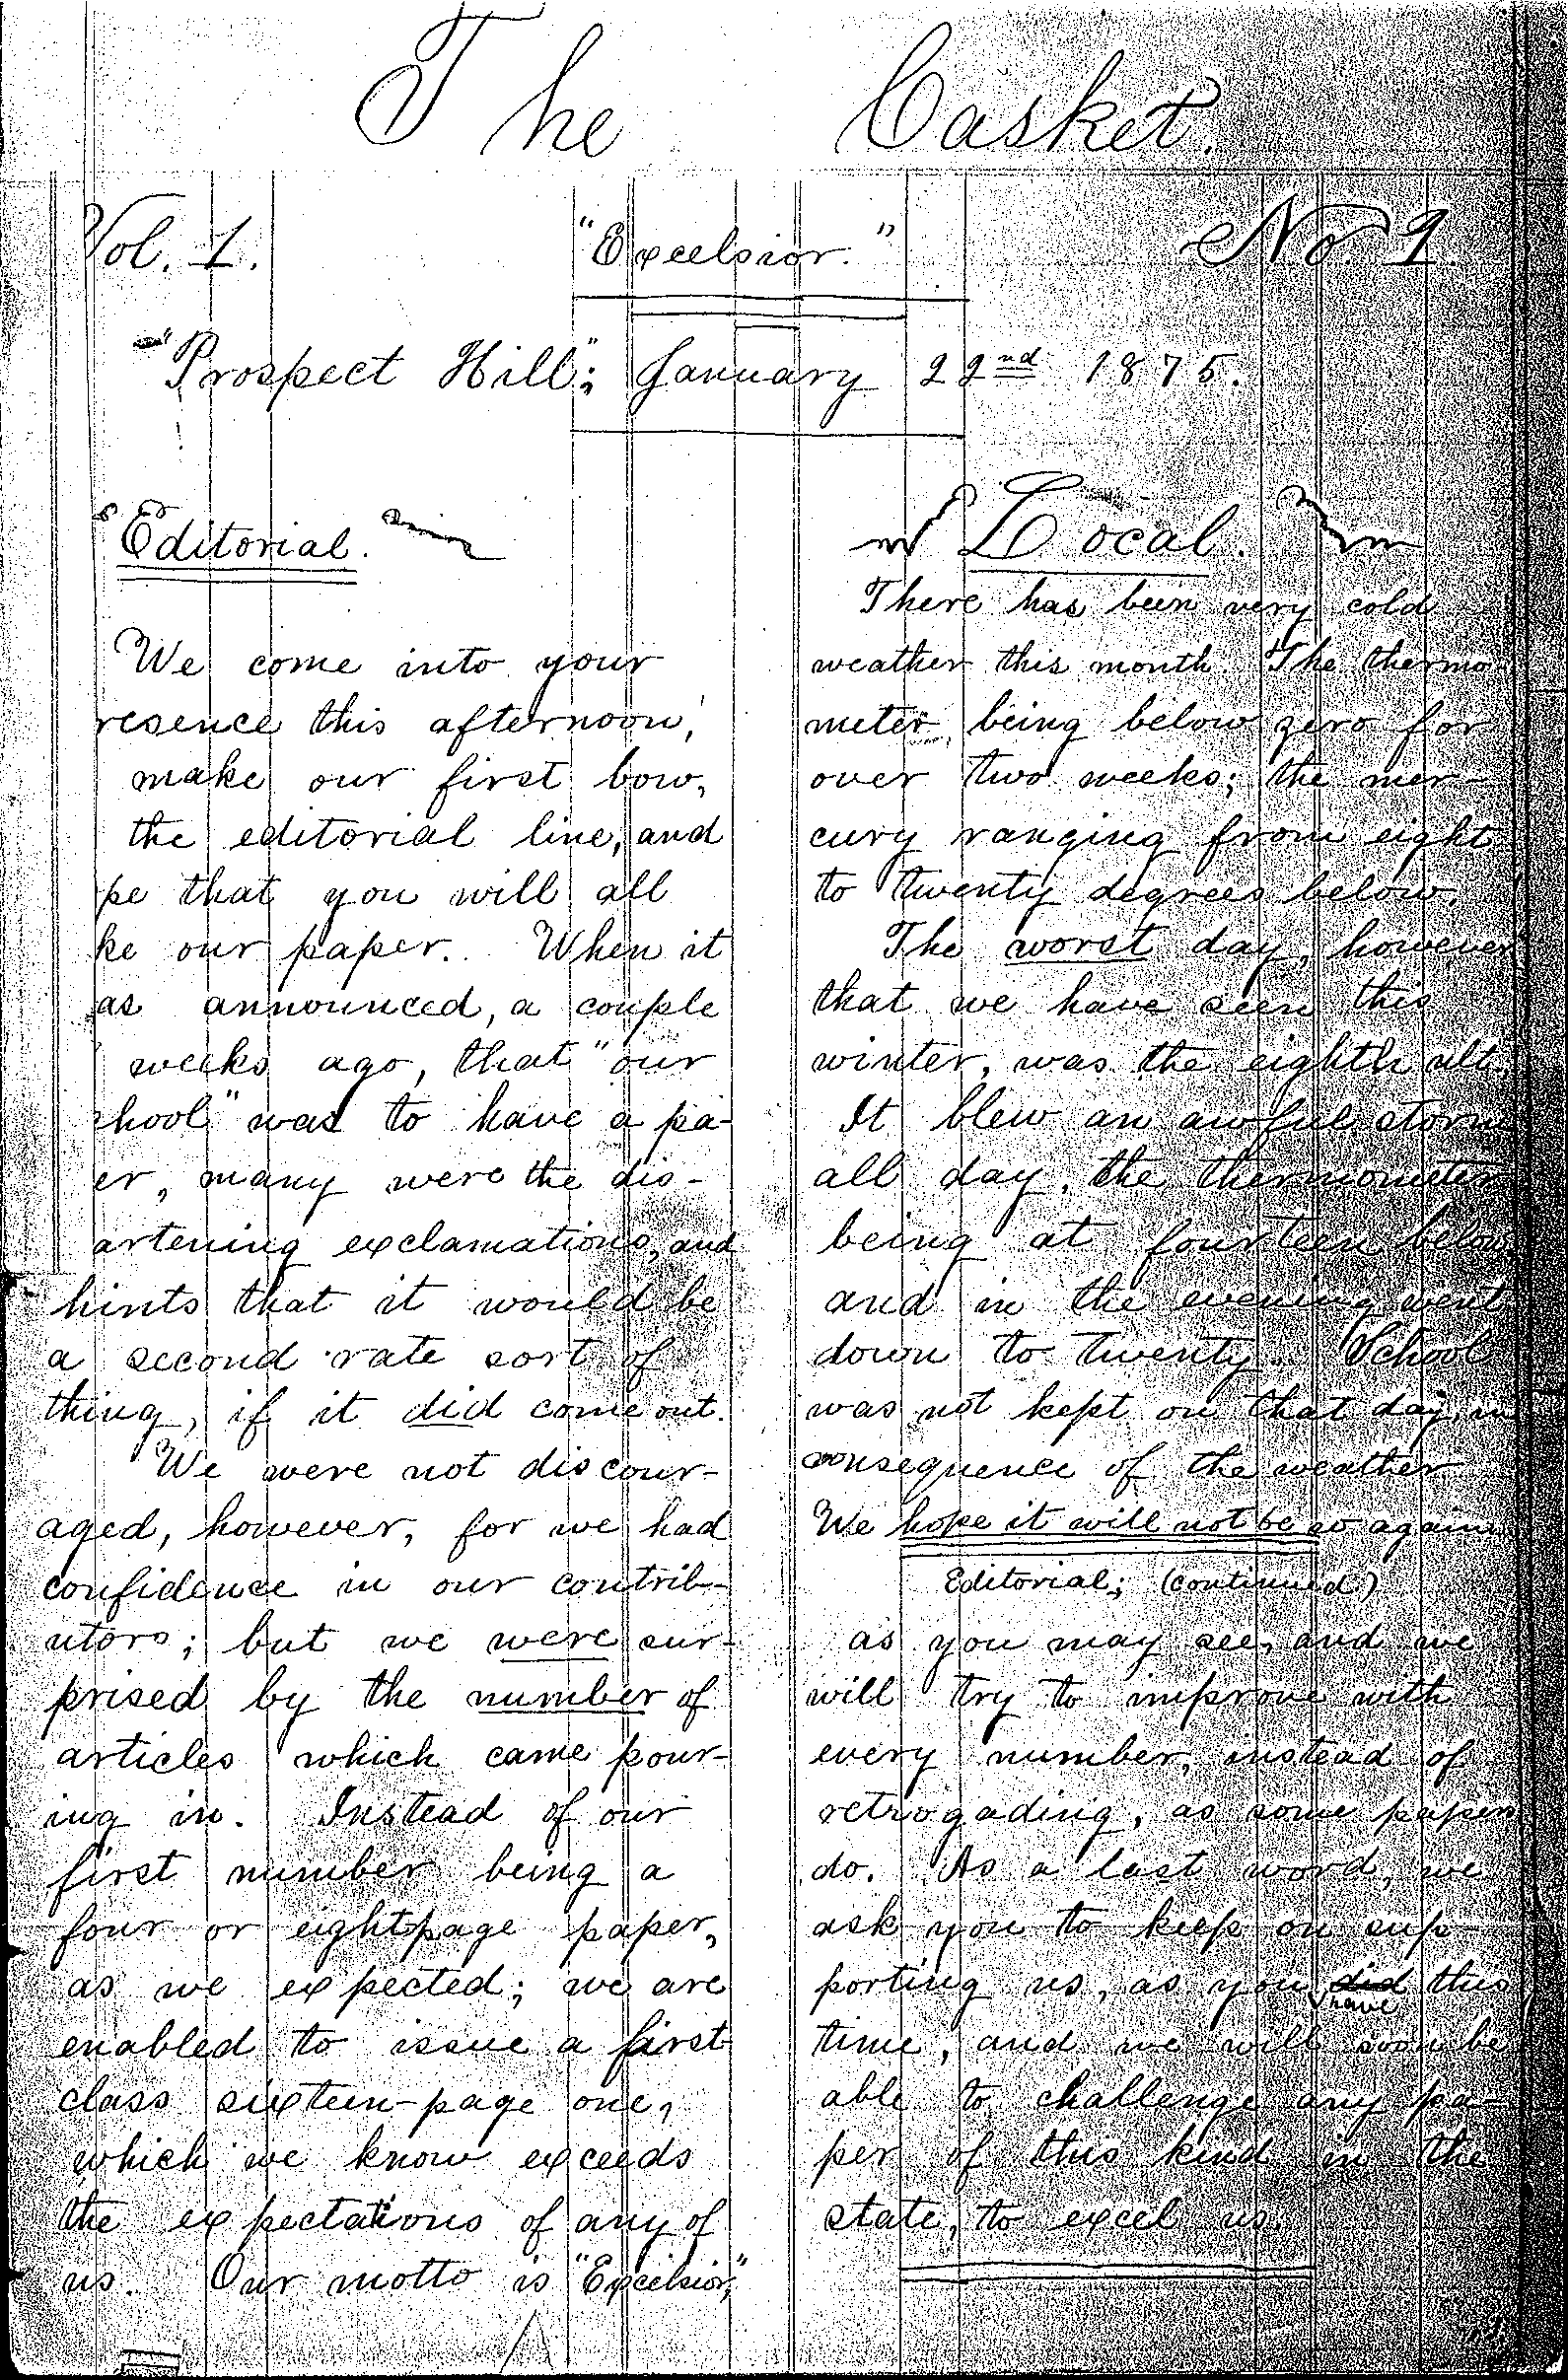 The Casket.
Vol. 1. "Excelsior." No. 1.
"Prospect Hill"; January 22nd 1875.
Editorial.
We come into your
resence this afternoon,
make our first bow,
the editorial line, and
pe that you will all
ke our paper. When it
as announced, a couple
weeks ago, that "our
chool" was to have a pa-
er, many were the dis-
artening exclamations, and
hints that it would be
a second rate sort of
thing, if it did come out.
We were not discour-
aged, however, for we had
confidence in our contrib-
utors; but we were sur-
prised by the number of
articles which came pour-
ing in. Instead of our
first number being a
four or eight page paper,
as we expected; we are
enabled to issue a first
class sixteen-page one,
which we know exceeds
the expectations of any of
us. Our motto is "Excelsior,"
Local.
There has been very cold
weather this month. The thermo-
meter, being below zero for
over two weeks; the mer-
cury ranging from eight
to twenty degrees below.
The worst day, however
that we have seen this
winter, was the eighth ult.
It blew an awful storm
all day, the thermometer
being at fourteen below
and in the evening went
down to twenty. School
was not kept on that day, in
consequence of the weather
We hope it will not be so again.
Editorial; (continued)
as you may see, and we
will try to improve with
every number, instead of
retrogading, as some papers
do. As a last word, we
ask you to keep on sup-
porting us, as you did have this
time, and we will soon be
able to challenge any pa-
per of this kind in the
state, to excel us.